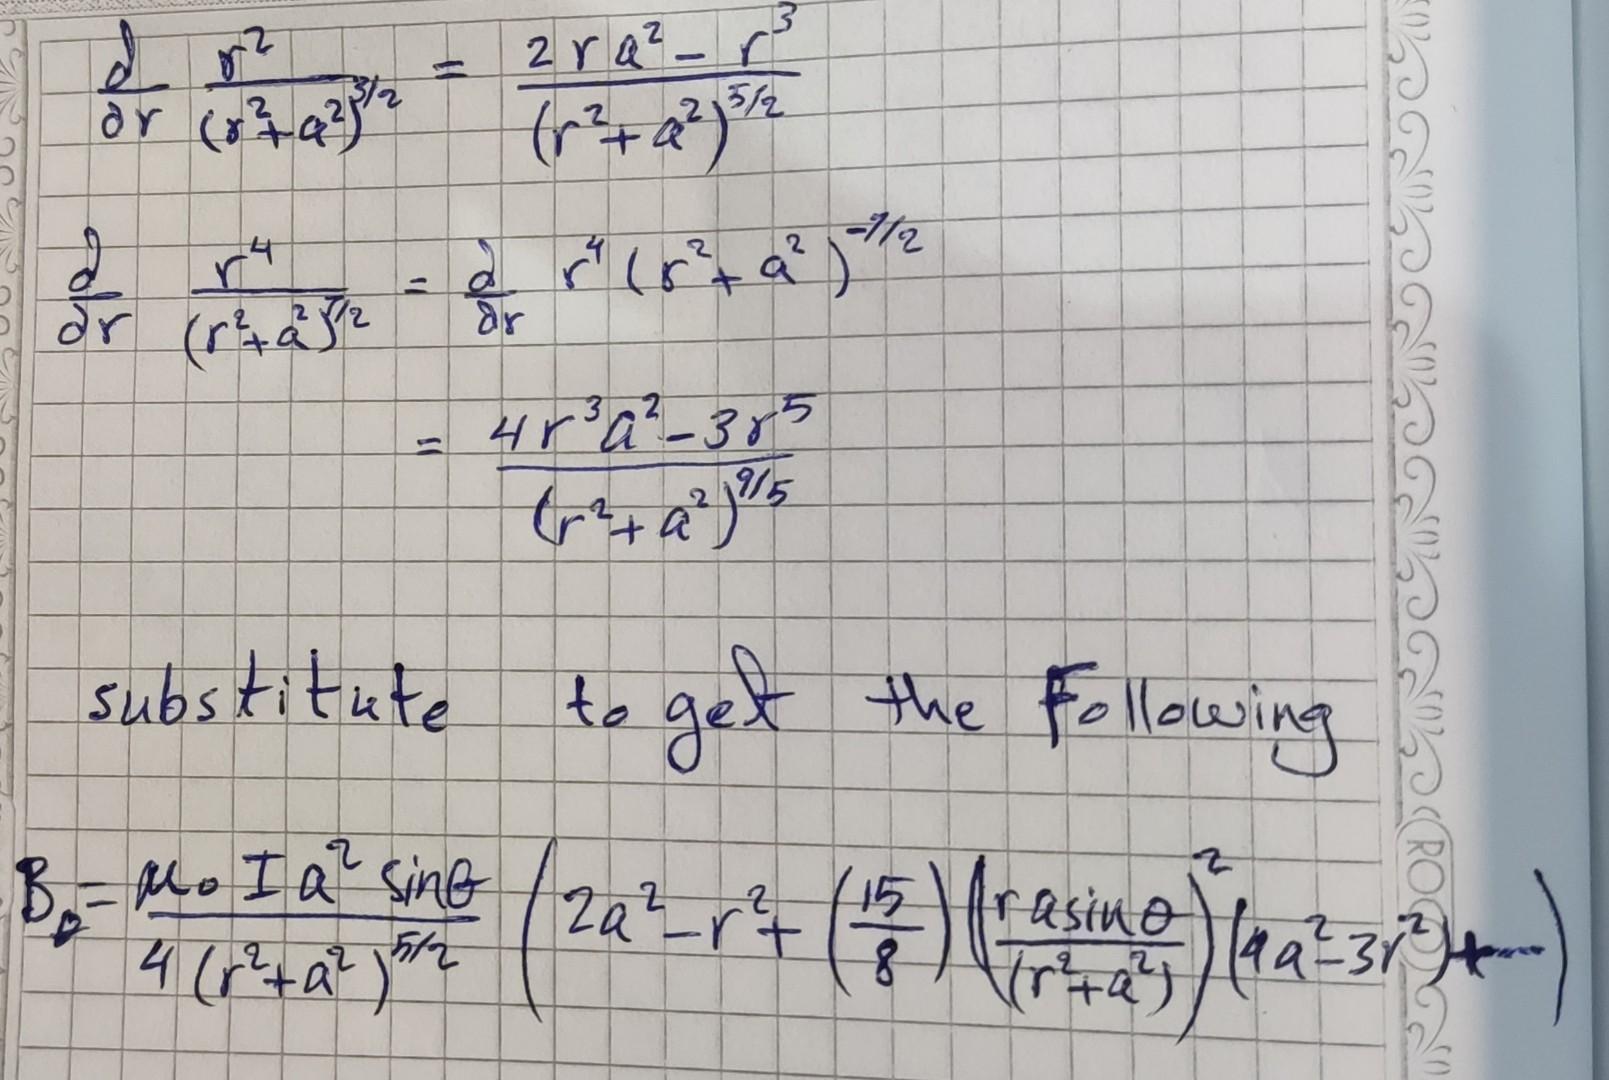 ∂/∂r r²/(r²+a²)^3/2 = (2ra² - r³)/(r²+a²)^5/2
∂/∂r r⁴/(r²+a²)^7/2 = ∂/∂r r⁴(r²+a²)^-7/2
= (4r³a² - 3r⁵)/(r²+a²)^9/5
substitute to get the Following
B_θ = μ₀Ia² sinθ/4(r²+a²)^5/2 (2a² - r² + (15/8)(ra sinθ/(r²+a²))² (4a² - 3r²) + ----)